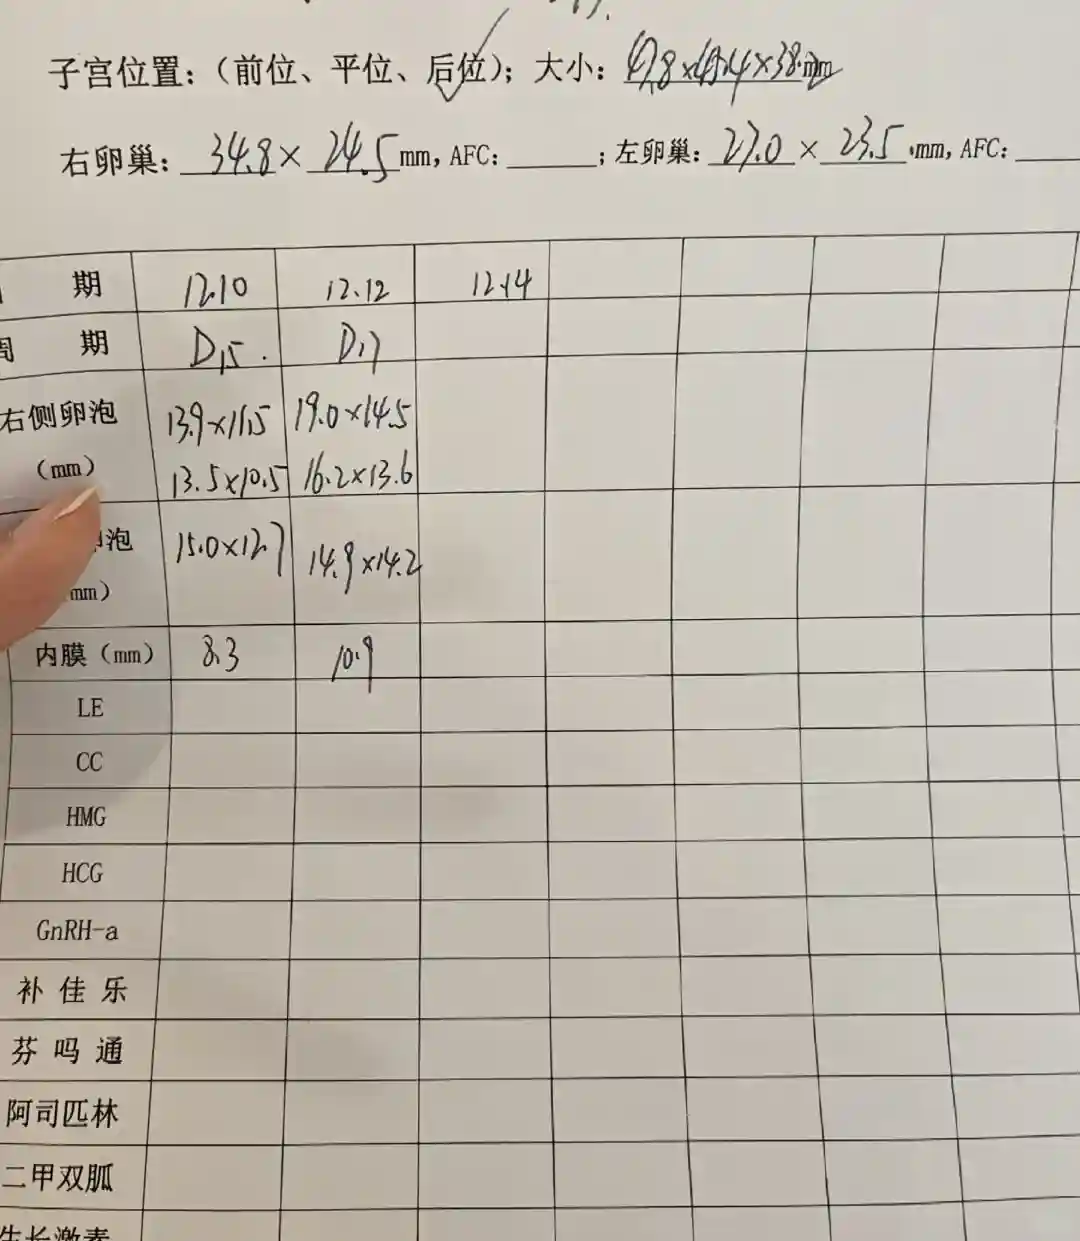 子宫位置：（前位、平位、后位）；大小：47.8×49.4×38mm
右卵巢：34.8×24.5mm，AFC：______；左卵巢：27.0×23.5mm，AFC：
期 12.10 12.12 12.14
周 期 D15. D17
右侧卵泡 13.9×11.5 19.0×14.5
（mm） 13.5×10.5 16.2×13.6
卵泡 15.0×12.7 14.9×14.2
mm）
内膜（mm） 8.3 10.9
LE
CC
HMG
HCG
GnRH-a
补佳乐
芬吗通
阿司匹林
二甲双胍
生长激素